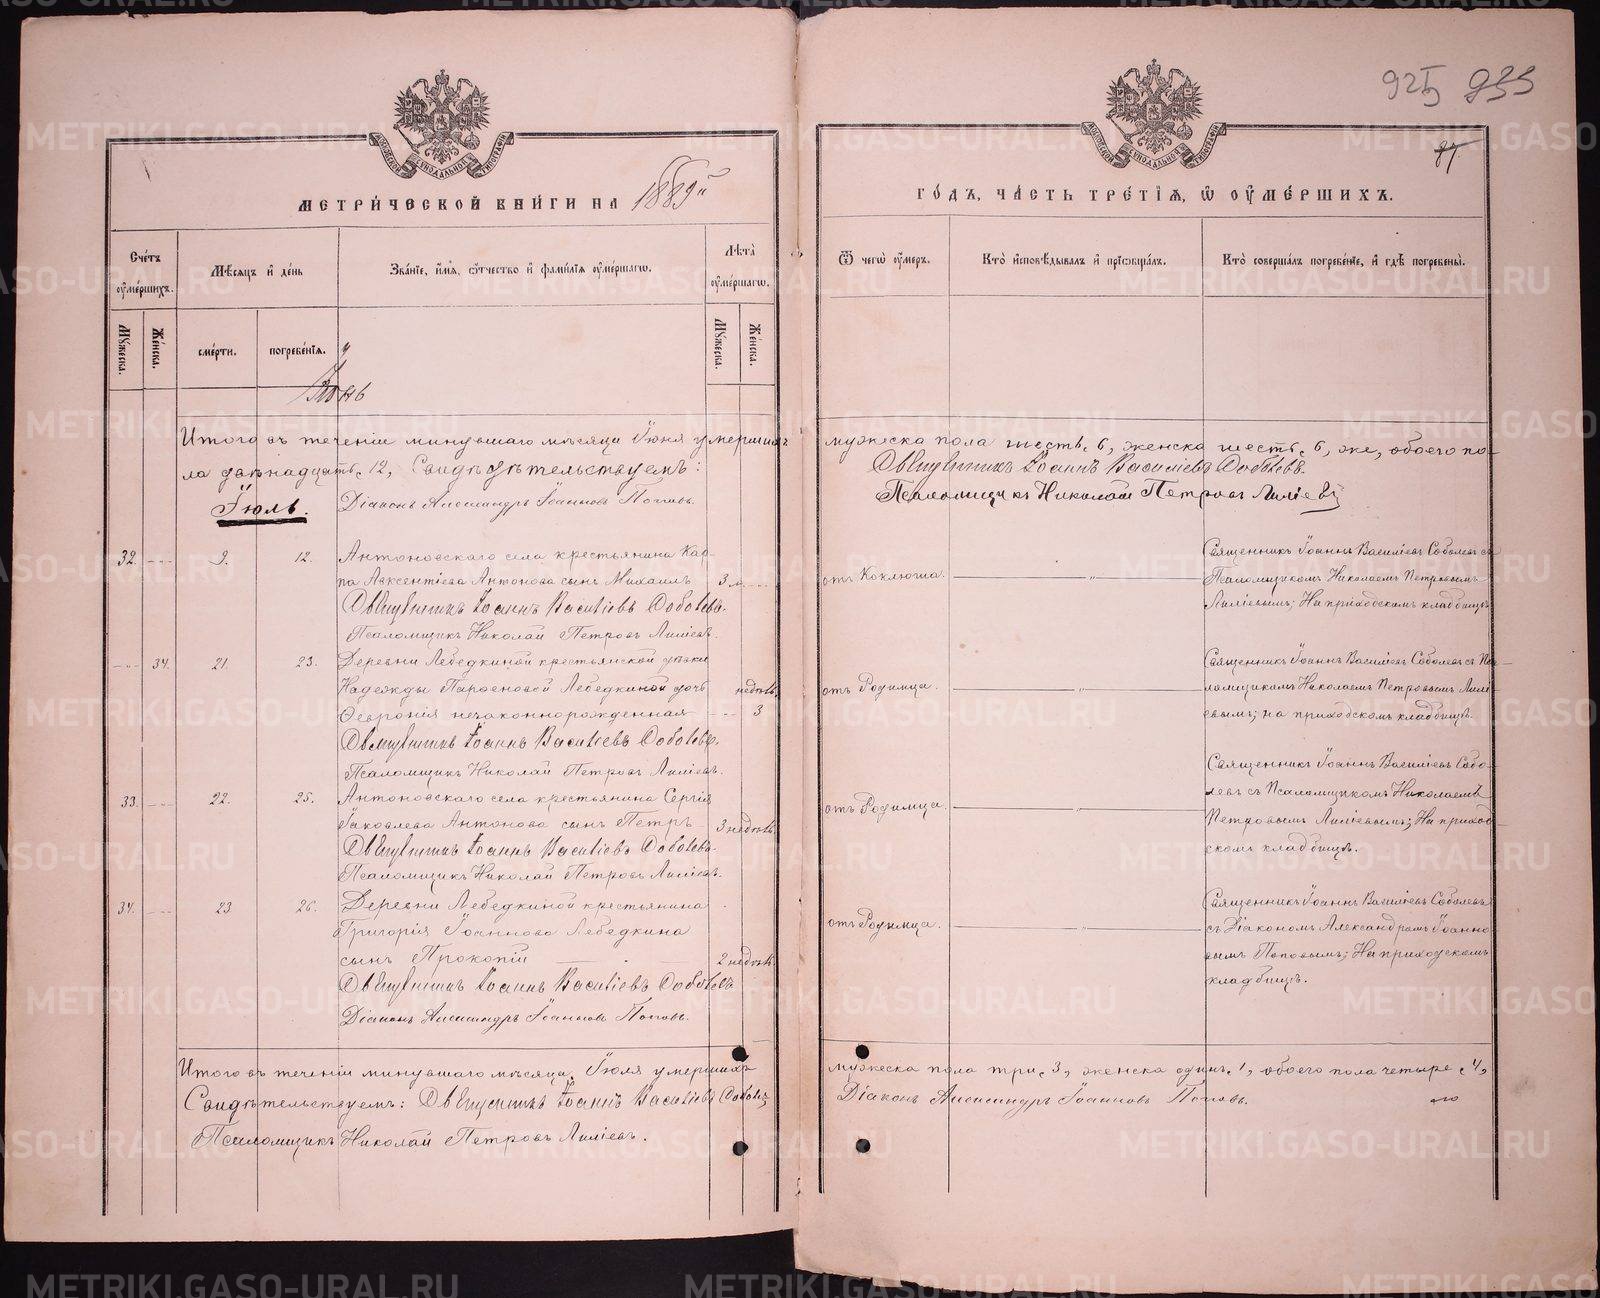 925 933
87
МЕТРИЧЕСКОЙ КНИГИ НА 1889й
ГОДЪ, ЧАСТЬ ТРЕТІЯ, Ѿ ОУМЕРШИХЪ.
Счетъ оумершихъ.
Мѣсяцъ и день
Званіе, имя, отчество и фамилія оумершаго.
Лѣта оумершаго.
Ѿ чего оумеръ.
Кто исповѣдывалъ и пріобщалъ.
Кто совершалъ погребеніе, и гдѣ погребены.
Мужеска.
Женска.
смерти.
погребенія.
Мужеска.
Женска.
Іюнь
Итого въ теченіи минувшаго мѣсяца Іюня умершихъ мужеска пола шесть, 6, женска шесть, 6, же, обоего по-
ла двѣнадцать, 12, Свидѣтельствуемъ: Священникъ Іоаннъ Василіевъ Соболевъ.
Діаконъ Александръ Іоанновъ Поповъ. Псаломщикъ Николай Петровъ Лиліевъ
Іюль.
32. 9. 12. Антоновскаго села крестьянина Кар-
па Авксентіева Антонова сынъ Михаилъ 3 м. отъ Коклюша.
Священникъ Іоаннъ Василіевъ Соболевъ.
Псаломщикъ Николай Петровъ Лиліевъ.
Священникъ Іоаннъ Василіевъ Соболевъ съ
Псаломщикомъ Николаемъ Петровымъ
Лиліевымъ; На приходскомъ кладбищѣ
34. 21. 23. Деревни Лебедкиной крестьянской дѣвки
Надежды Парѳеновой Лебедкиной дочь недѣль отъ Родимца.
Ѳевронія незаконнорожденная 3
Священникъ Іоаннъ Василіевъ Соболевъ.
Псаломщикъ Николай Петровъ Лиліевъ.
Священникъ Іоаннъ Василіевъ Соболевъ съ Пса-
ломщикомъ Николаемъ Петровымъ Лилі-
евымъ; на приходскомъ кладбищѣ.
33. 22. 25. Антоновскаго села крестьянина Сергія
Іаковлева Антонова сынъ Петръ 3 недѣль отъ Родимца.
Священникъ Іоаннъ Василіевъ Соболевъ.
Псаломщикъ Николай Петровъ Лиліевъ.
Священникъ Іоаннъ Василіевъ Собо-
левъ съ Псаломщикомъ Николаемъ
Петровымъ Лиліевымъ; На приход-
скомъ кладбищѣ.
34. 23. 26. Деревни Лебедкиной крестьянина
Григорія Іоаннова Лебедкина отъ Родимца.
сынъ Прокопій 2 недѣль.
Священникъ Іоаннъ Василіевъ Соболевъ
Діаконъ Александръ Іоанновъ Поповъ.
Священникъ Іоаннъ Василіевъ Соболевъ
съ Діакономъ Александромъ Іоанно-
вымъ Поповымъ; На приходскомъ
кладбищѣ.
Итого въ теченіи минувшаго мѣсяца Іюля умершихъ мужеска пола три, 3, женска одинъ, 1, обоего пола четыре, 4,
Свидѣтельствуемъ: Священникъ Іоаннъ Василіевъ Соболевъ, Діаконъ Александръ Іоанновъ Поповъ.
Псаломщикъ Николай Петровъ Лиліевъ.
METRIKI.GASO-URAL.RU